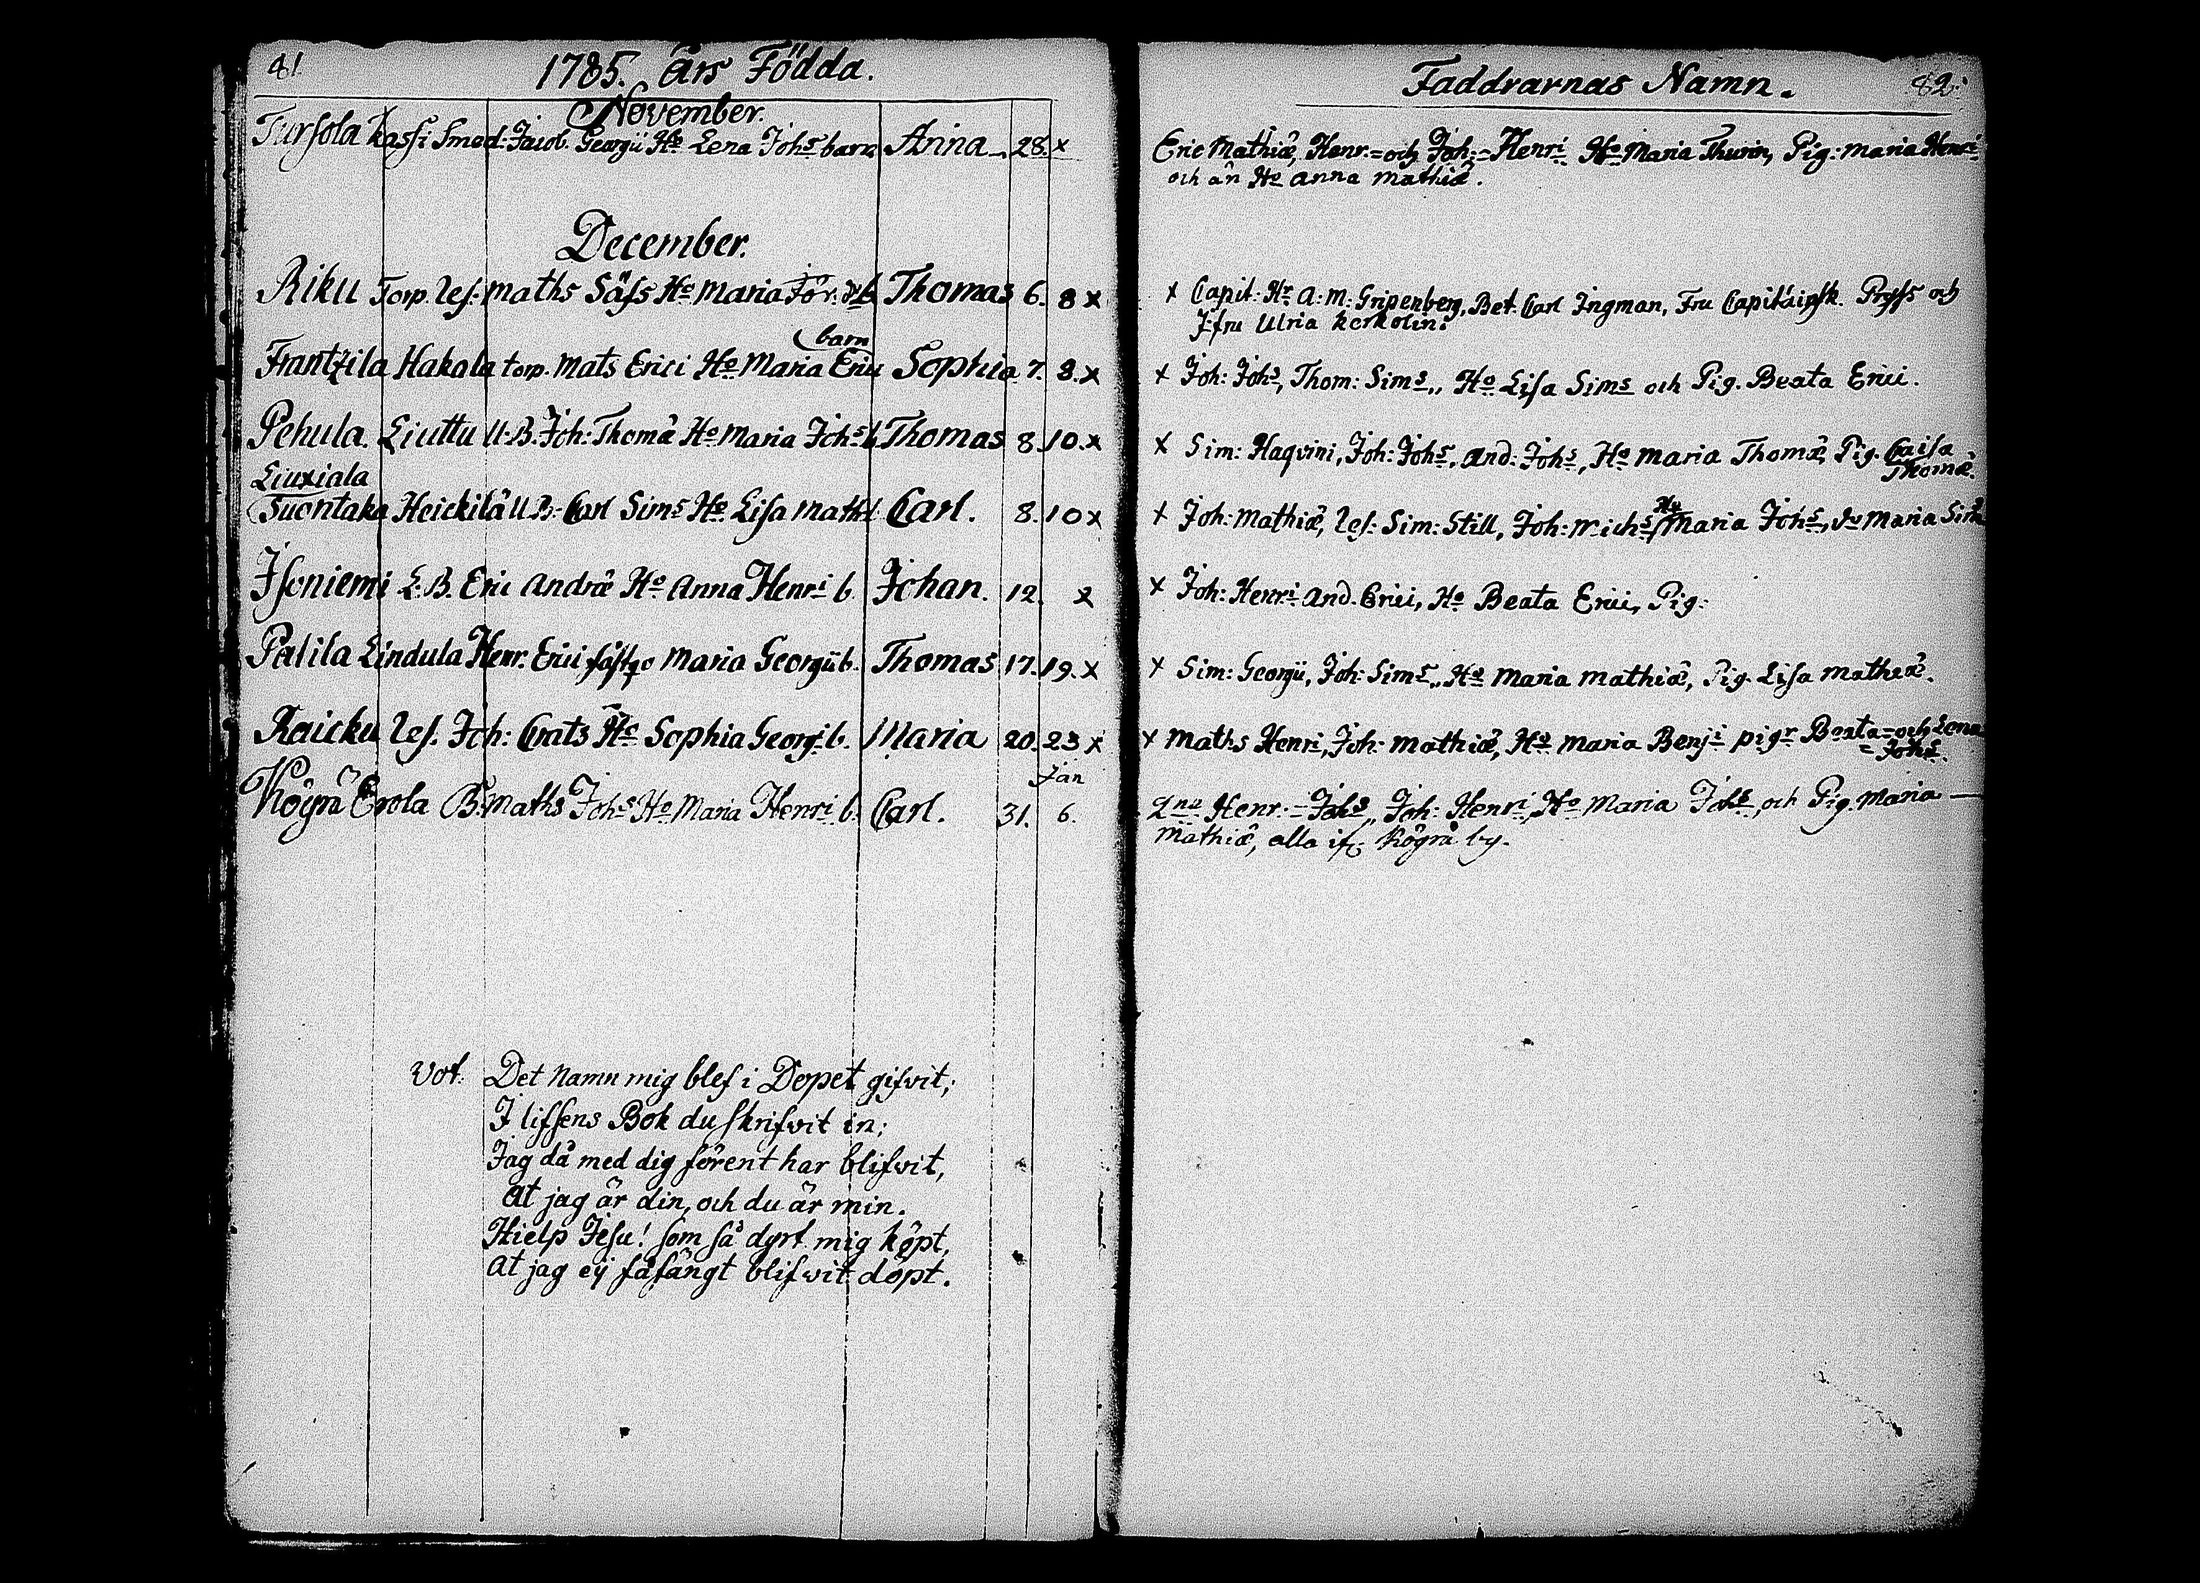 81.
1785. Års Födda.
November.
Tursola Kassi Smed: Jacob Georgii Ho Lena Johs barn Anna 28. x
December.
Riku Torp. Ref: Maths Säfs Ho Maria Thomas 6. 8 x
barn
Frantzila Hakala torp. Mats Erici Ho Maria Erici Sophia 7. 8. x
Pehula. Liuttu U.B. Joh: Thomæ Ho Maria Johs b. Thomas 8. 10. x
Liuxiala
Suontaka Heickilä U.B. Carl Sims Ho Lisa Math: b. Carl. 8. 10 x
Isoniemi L.B. Eric Andræ Ho Anna Henri b. Johan. 12. x
Palila Lindula Henr. Erici Maria Georgii b. Thomas 17. 19. x
Raicku Ref. Joh: Crats Ho Sophia Georgi b. Maria 20. 23 x
Jan
Kögrä Erola B: Maths Johs Ho Maria Henri b. Carl. 31. 6.
Vot: Det Namn mig blef i Dopet gifvit,
I lifsens Bok du skrifvit in;
Jag då med dig förent har blifvit,
At jag är din, och du är min.
Hielp Jesu! som så dyrt mig köpt,
At jag ej fåfängt blifvit döpt.
Faddrarnas Namn.
82.
Eric Mathiæ, Henr. = och Joh: = Henri Ho Maria Thurin, Pig: Maria Henri
och än Ho Anna Mathiæ.
x Capit: Hr A: M: Gripenberg, Bet. Carl Ingman, Fru Pryss och
J:fru Ulrica Kerkolin.
x Joh: Johs, Thom: Sims, Ho Lisa Sims och Pig. Beata Erici.
x Sim: Haqvini, Joh: Johs, And: Johs, Ho Maria Thomæ, Pig. Caisa
Thomæ.
x Joh: Mathiæ, Ref: Sim: Still, Joh: Michs, Hu Maria Johs, do Maria Sims
x Joh: Henri And. Erici, Ho Beata Erici, Pig:
x Sim: Georgii, Joh: Sims, Ho Maria Mathiæ, Pig. Lisa Matheæ.
x Maths Henri, Joh: Mathiæ, Ho Maria Benji pigr Beata = och Lena
= Johs.
Henr: = Johs, Joh: Henri, Ho Maria Johs, och Pig. Maria —
Mathiæ, alla ifr. Kögrä by.